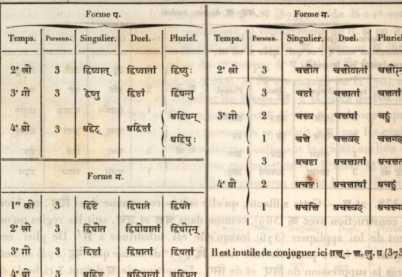 Forme प.
Temps. Person. Singulier. Duel. Pluriel.
2ᵉ श्रो 3 द्विष्यात् द्विष्यातां द्विष्युः
3ᵉ गो 3 द्वेष्टु द्विष्टां द्विषन्तु
4ᵉ घो 3 अद्वेट् अद्विष्टां अद्विषन्
अद्विषुः
Forme म.
1ʳᵉ को 3 द्विष्टे द्विषाते द्विषते
2ᵉ श्रो 3 द्विषीत द्विषीयातां द्विषीरन्
3ᵉ गो 3 द्विष्टां द्विषातां द्विषतां
4ᵉ घो 3 अद्विष्ट अद्विषातां अद्विषत
Forme म.
Temps. Person. Singulier. Duel. Pluriel
2ᵉ श्रो 3 चक्षीत चक्षीयातां
3ᵉ गो 3 चष्टां चक्षातां
2 चक्ष्व चक्षाथां
1 चक्षै चक्षावहै
4ᵉ घो 3 अचष्ट अचक्षातां
2 अचष्ठाः अचक्षाथां
1 अचक्षि अचक्ष्वहि
Il est inutile de conjuguer ici